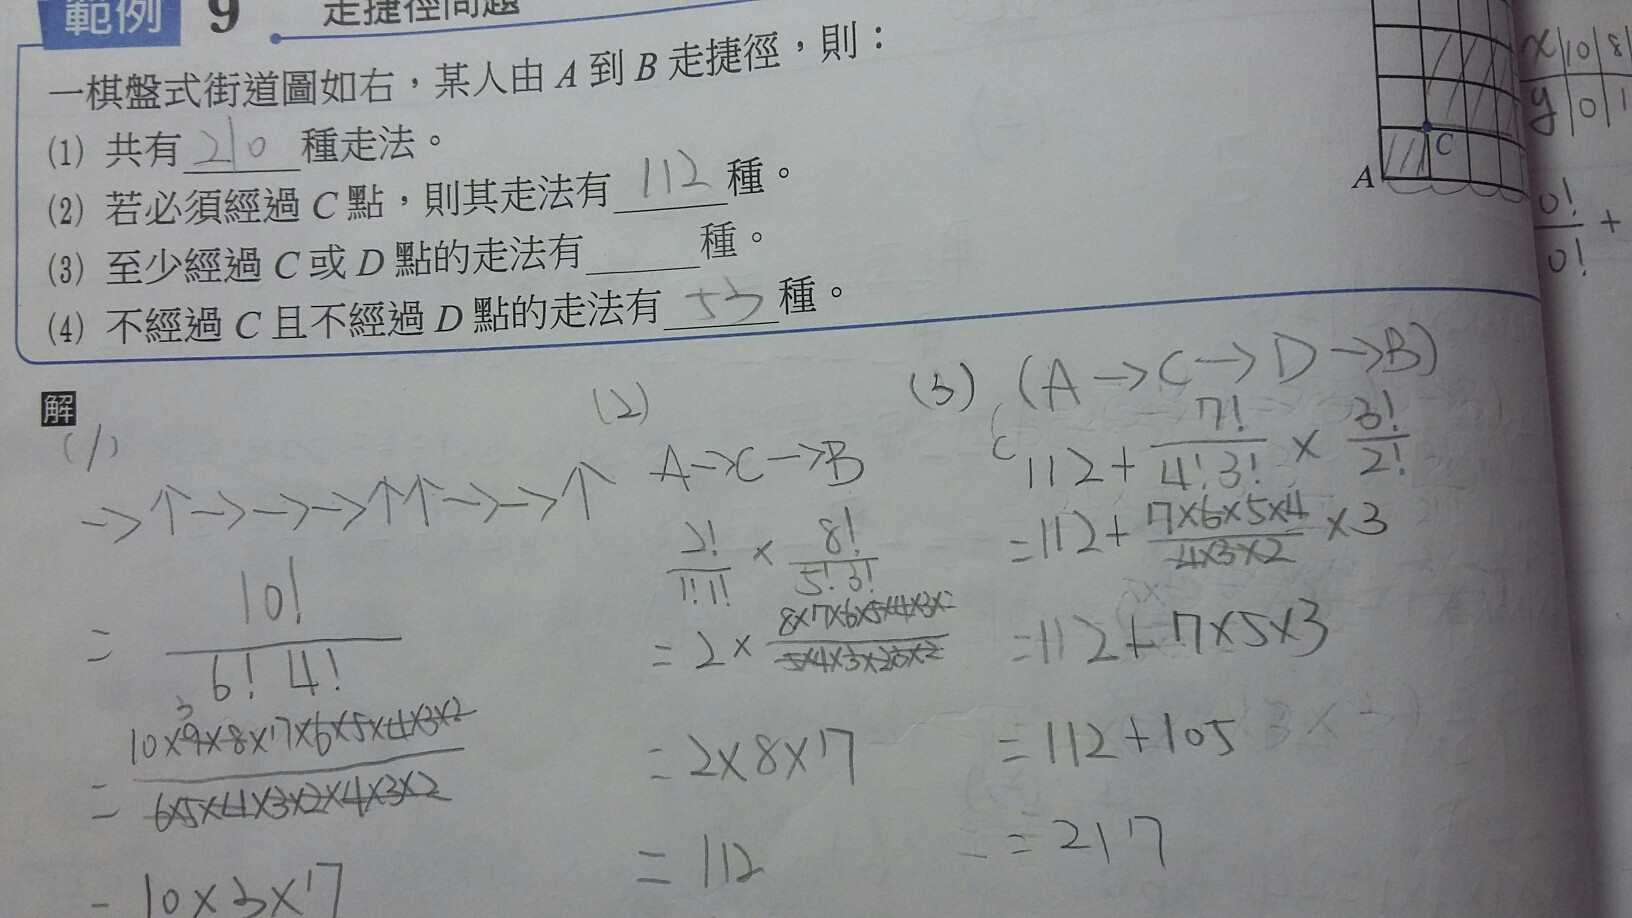 範例 9 走捷徑問題
一棋盤式街道圖如右，某人由 A 到 B 走捷徑，則：
(1) 共有 210 種走法。
(2) 若必須經過 C 點，則其走法有 112 種。
(3) 至少經過 C 或 D 點的走法有______種。
(4) 不經過 C 且不經過 D 點的走法有 53 種。
C
A
x|10|8|
y|0|1
0!/0! +
解
(1)
→↑→→→↑↑→→↑
= 10!/6!4!
= 10×9×8×7×6×5×4×3×2/6×5×4×3×2×4×3×2
3
= 10×3×7
(2)
A→C→B
2!/1!1! × 8!/5!3!
= 2×
= 2×8×7
= 112
(3) (A→C→D→B)
112+7!/4!3!×3!/2!
=112+7×6×5×4/4×3×2×3
=112+7×5×3
=112+105
=217